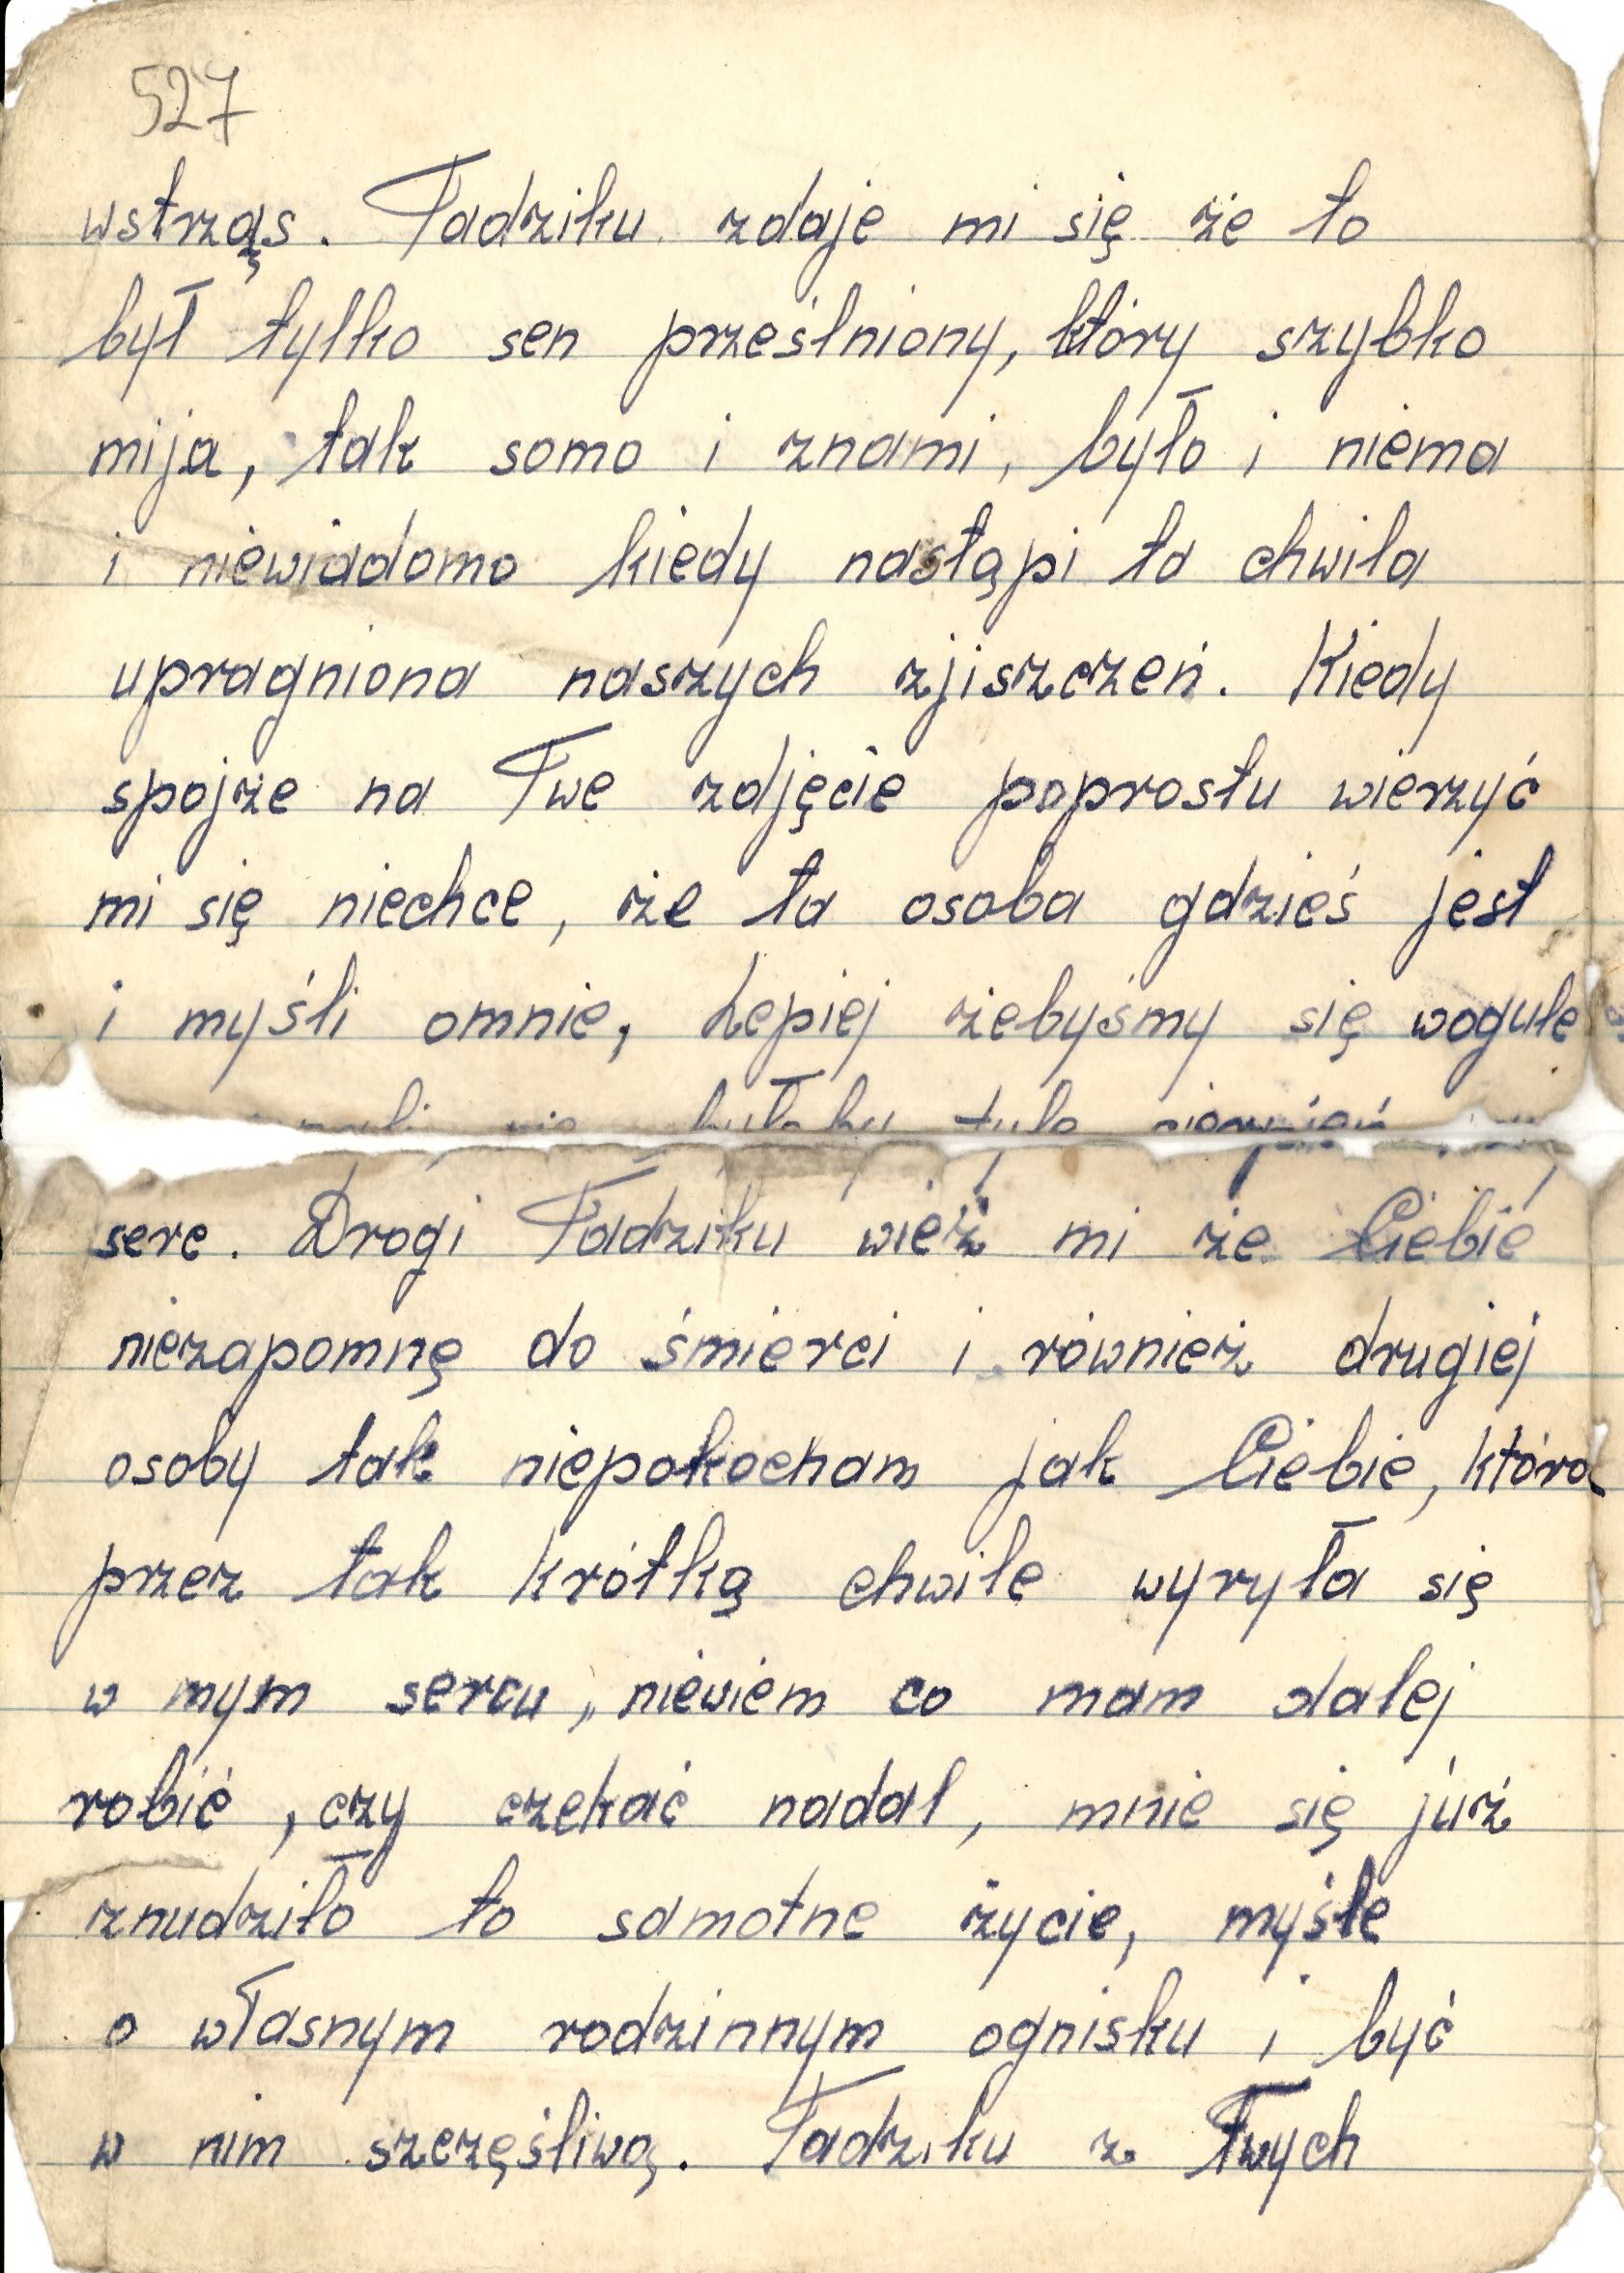 527
wstrząs. Tadziku zdaje mi się że to
był tylko sen prześlniony, który szybko
mija, tak samo i znami, było i niema
i niewiadomo kiedy nastąpi ta chwila
upragniona naszych zjiszczeń. Kiedy
spojże na Twe zdjęcie poprostu wierzyć
mi się niechce, że ta osoba gdzieś jest
i myśli omnie, Lepiej żebyśmy się wogule
byłoby tyle cierpień
serc. Drogi Tadziku wież mi że Ciebie
niezapomnę do śmierci i również drugiej
osoby tak niepokocham jak Ciebie, która
przez tak krótką chwile wyryła się
w mym sercu, niewiem co mam dalej
robić, czy czekać nadal, mnie się już
znudziło to samotne życie, myśle
o własnym rodzinnym ognisku i być
w nim szczęśliwą. Tadziku z Twych